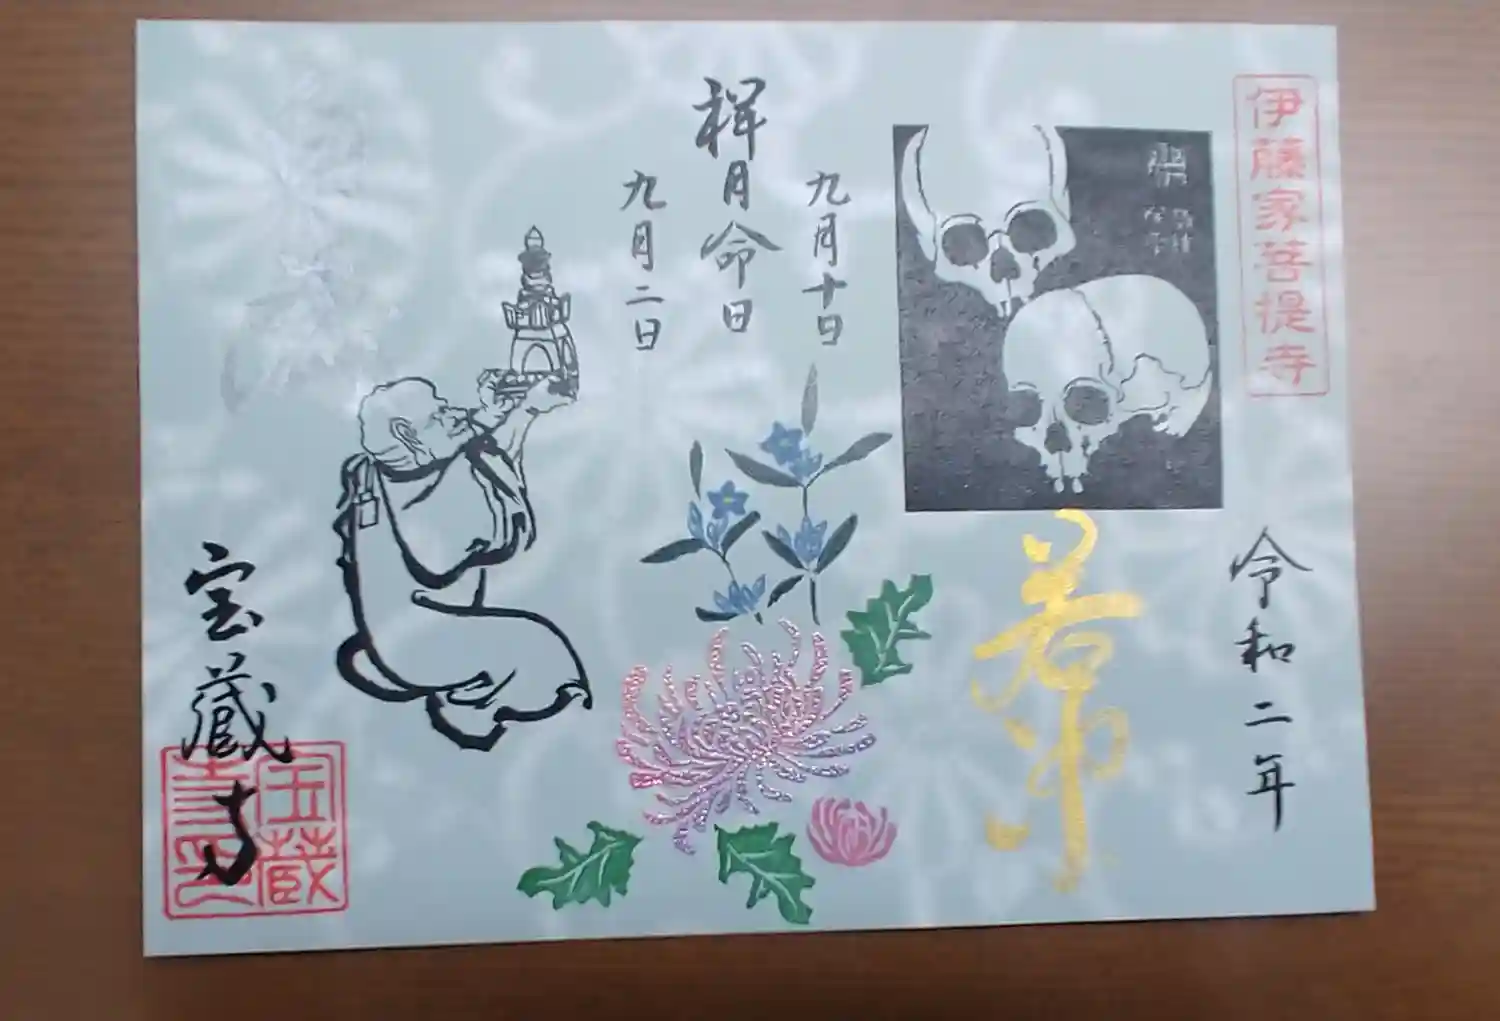 伊藤家菩提寺
令和二年
若冲
九月十日
祥月命日
九月二日
宝蔵寺